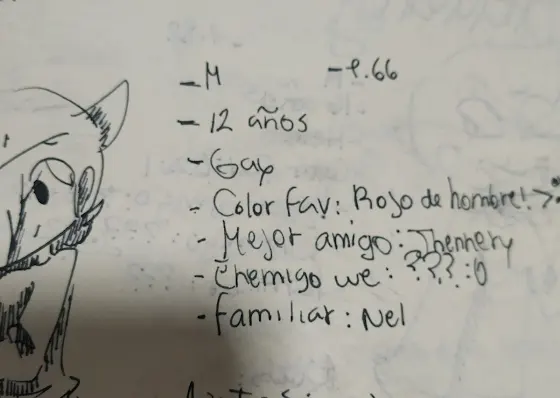 - M - 1.66
- 12 años
- Gay
- Color fav: Rojo de hombre! >:
- Mejor amigo: Jhennery
- Enemigo we: ??? :0
- familiar: Nel